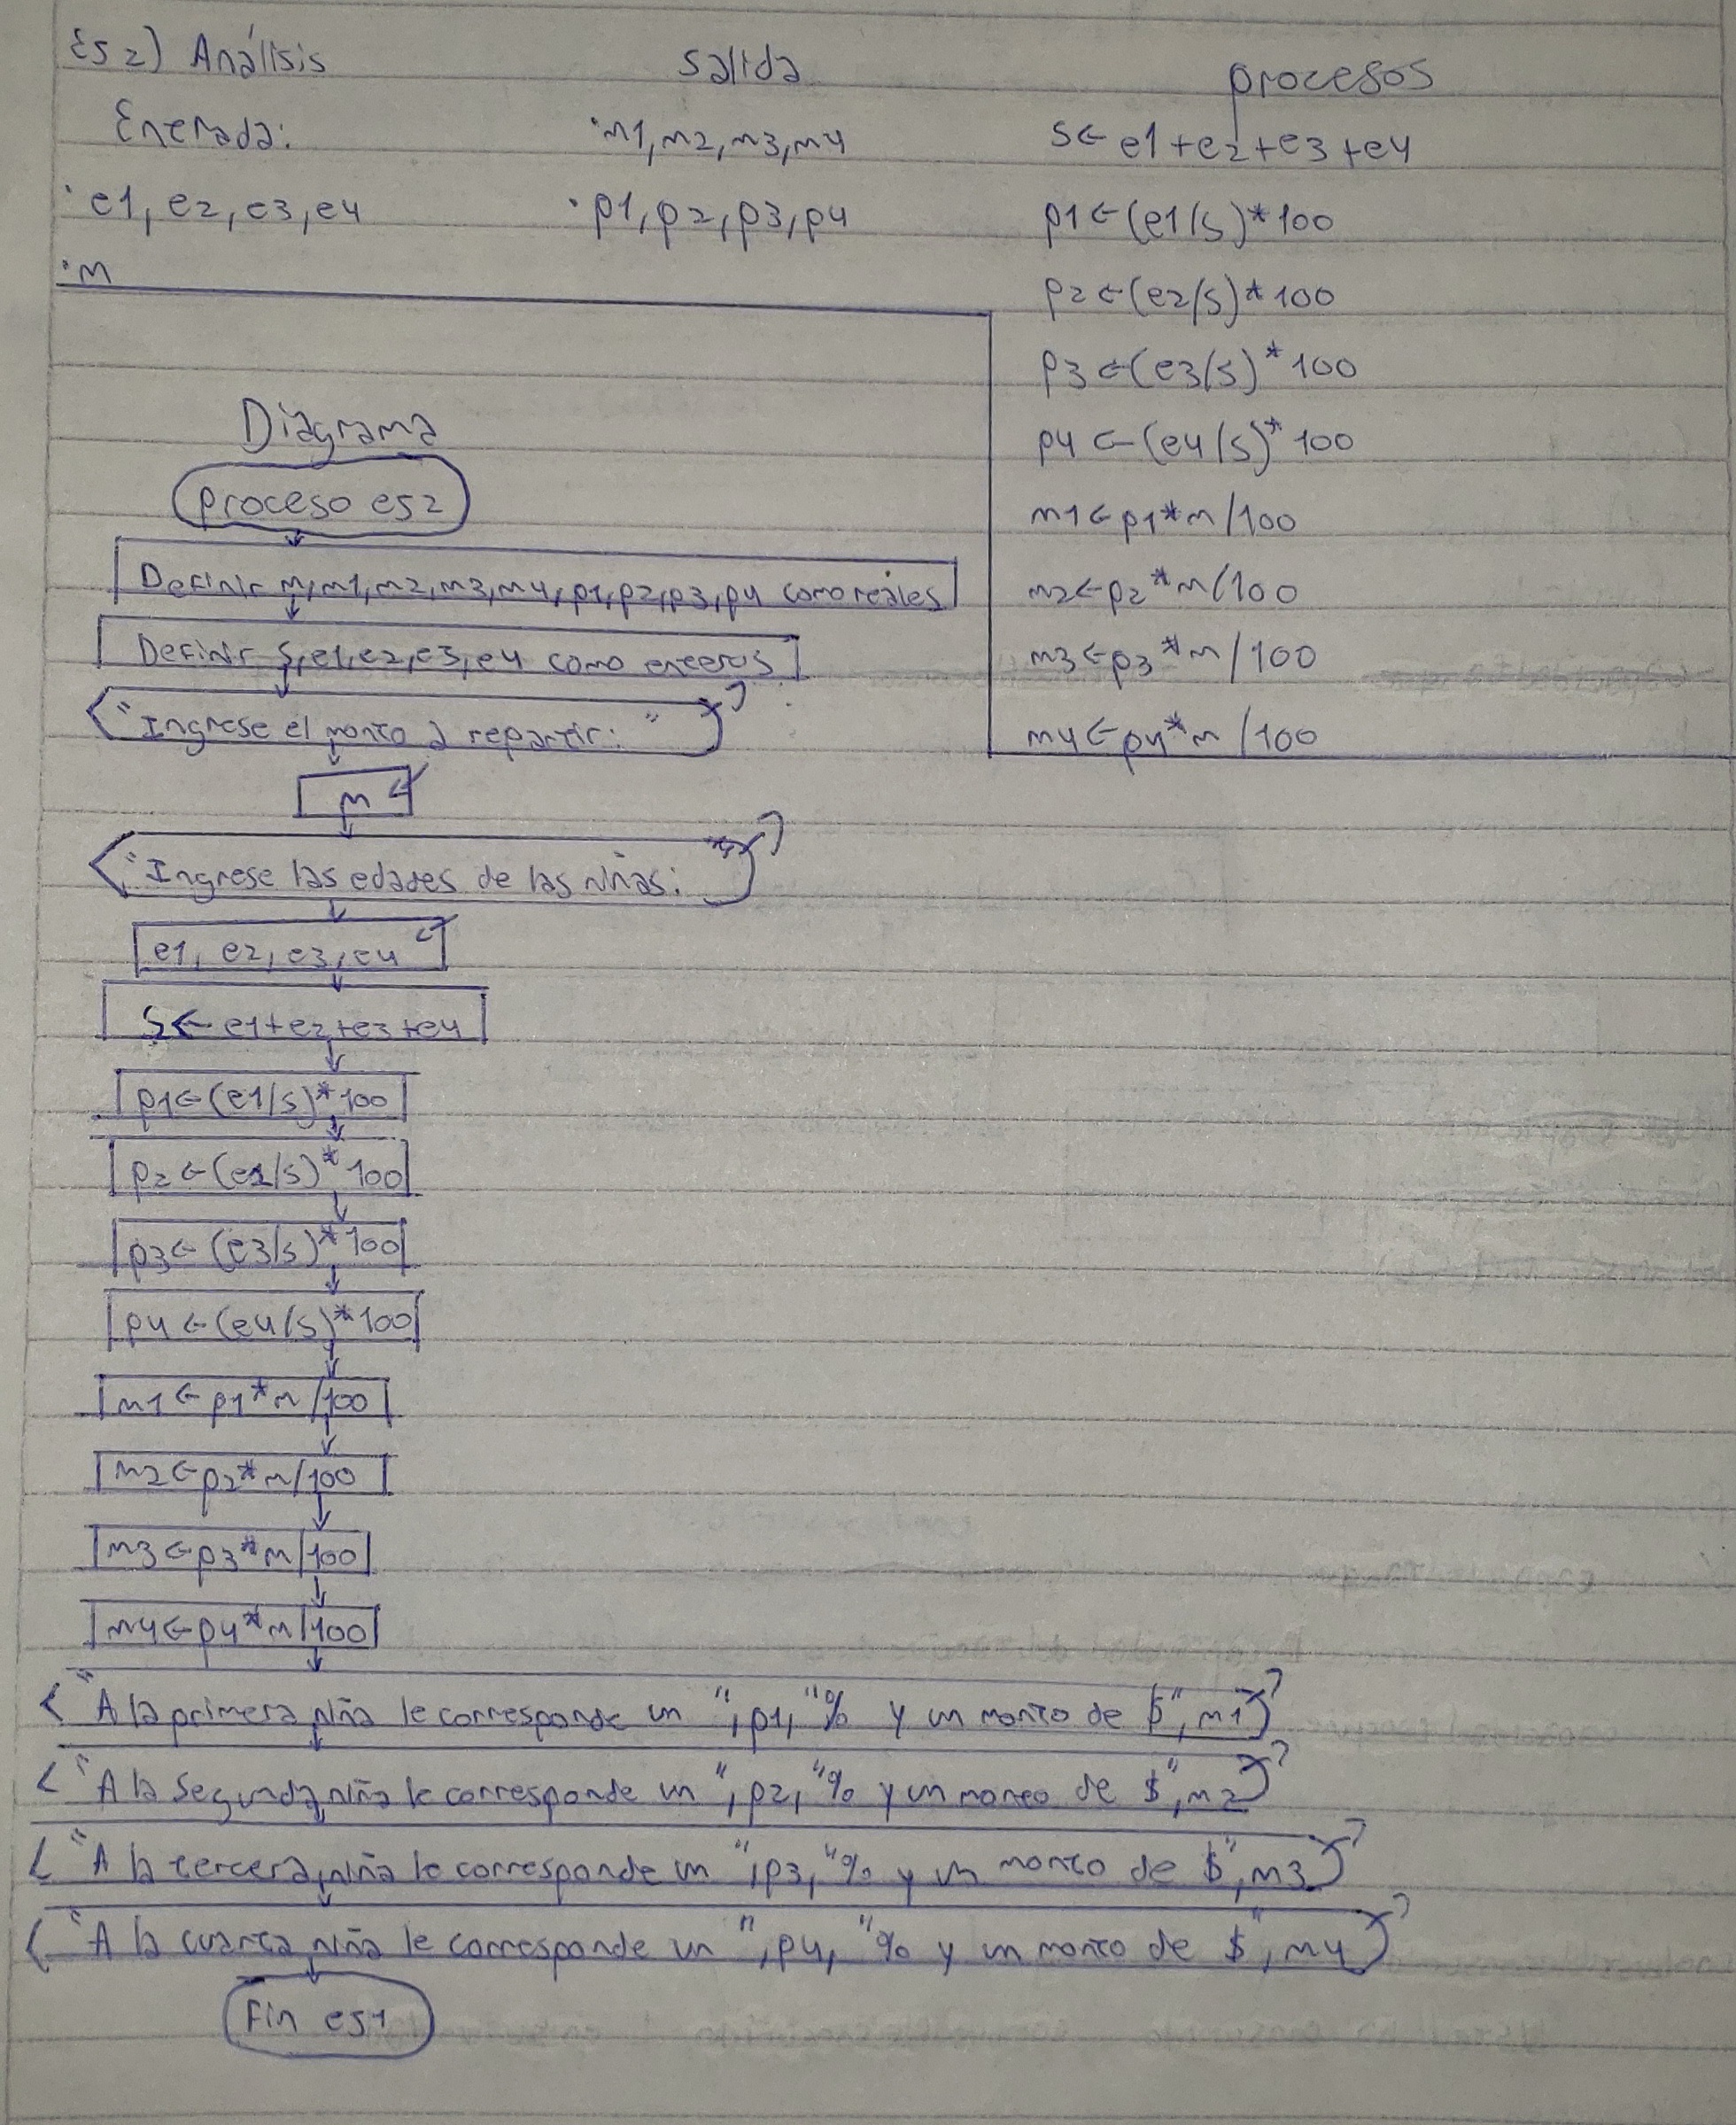 Es2) Análisis
Entrada:
· e1, e2, e3, e4
· m
salida
· m1, m2, m3, m4
· p1, p2, p3, p4
procesos
s← e1+e2+e3+e4
p1←(e1/s)*100
p2←(e2/s)*100
p3←(e3/s)*100
p4←(e4/s)*100
m1←p1*m/100
m2←p2*m/100
m3←p3*m/100
m4←p4*m/100
Diagrama
proceso es2
Definir m,m1,m2,m3,m4,p1,p2,p3,p4 como reales
Definir s,e1,e2,e3,e4 como enteros
"Ingrese el monto a repartir: "
m
"Ingrese las edades de las niñas: "
e1, e2, e3, e4
s← e1+e2+e3+e4
p1←(e1/s)*100
p2←(e2/s)*100
p3←(e3/s)*100
p4←(e4/s)*100
m1←p1*m/100
m2←p2*m/100
m3←p3*m/100
m4←p4*m/100
"A la primera niña le corresponde un ",p1,"% y un monto de $",m1
"A la segunda niña le corresponde un ",p2,"% y un monto de $",m2
"A la tercera niña le corresponde un ",p3,"% y un monto de $",m3
"A la cuarta niña le corresponde un ",p4,"% y un monto de $",m4
Fin es1